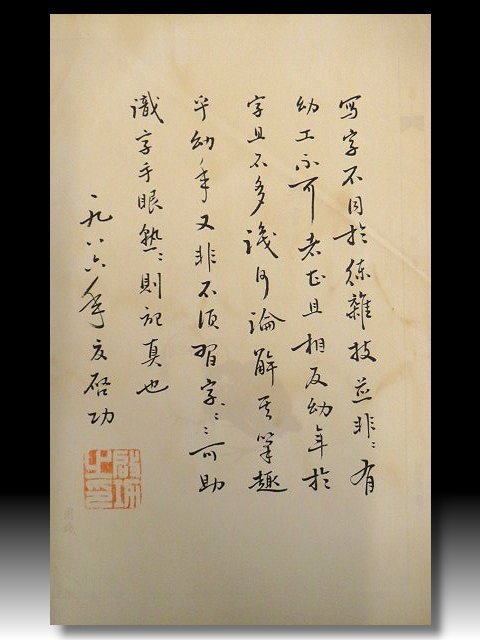 写字不同於練雜技並非〻有
幼工不可者甚且相反幼年於
字且不多識何論解其筆趣
乎幼年又非不須習字〻〻可助
識字手眼熟〻則記真也
一九八六年夏啓功
啓功之印